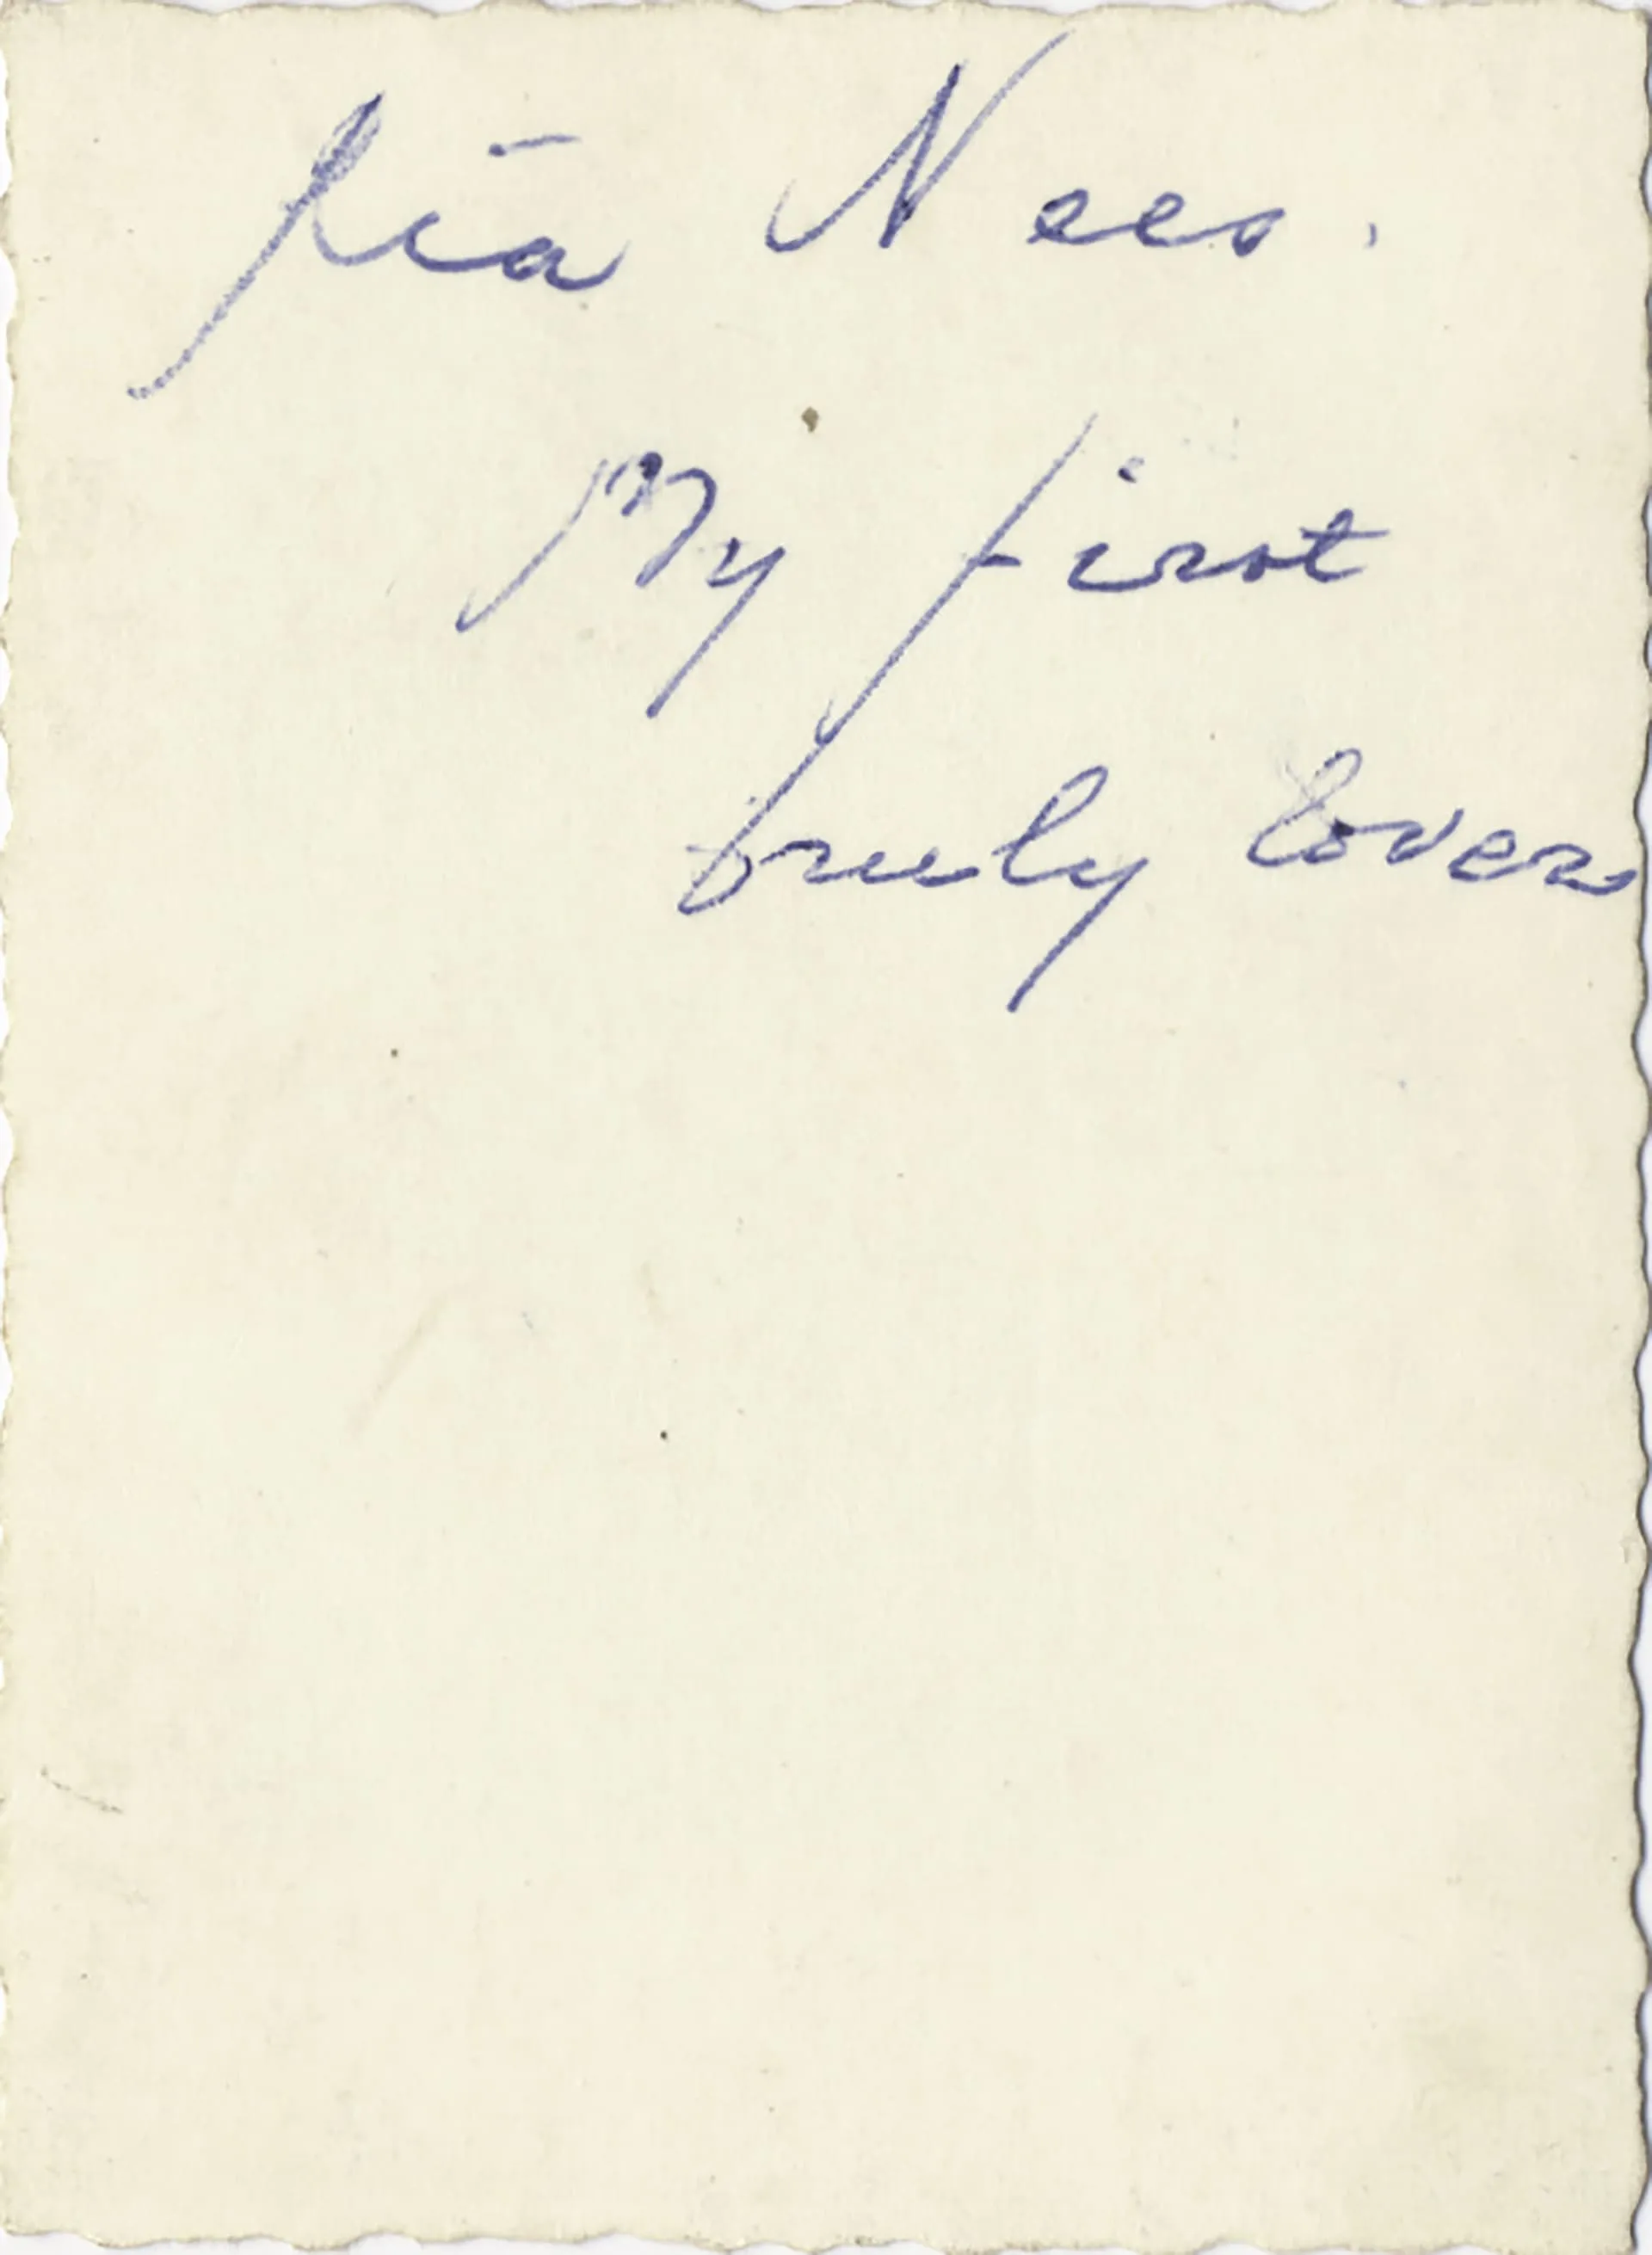 Ria Nees.
My first
truly lover